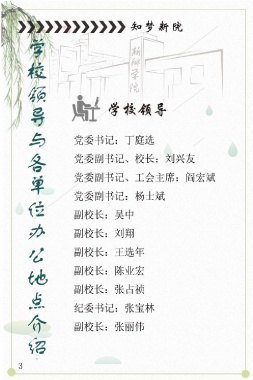 知梦新院
学校领导与各单位办公地点介绍
学校领导
党委书记：丁庭选
党委副书记、校长：刘兴友
党委副书记、工会主席：阎宏斌
党委副书记：杨士斌
副校长：吴中
副校长：刘翔
副校长：王选年
副校长：陈业宏
副校长：张占祯
纪委书记：张宝林
副校长：张丽伟
3